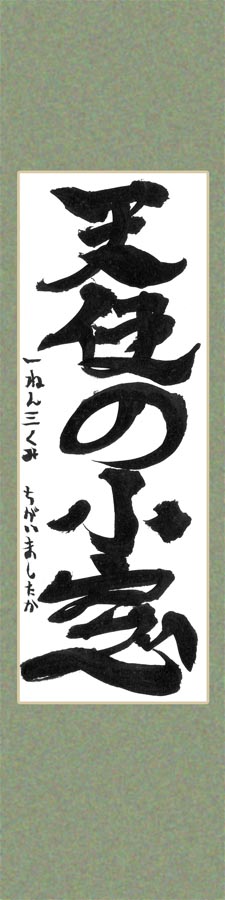 天使の小窓
一ねん三くみ ちがいましたか